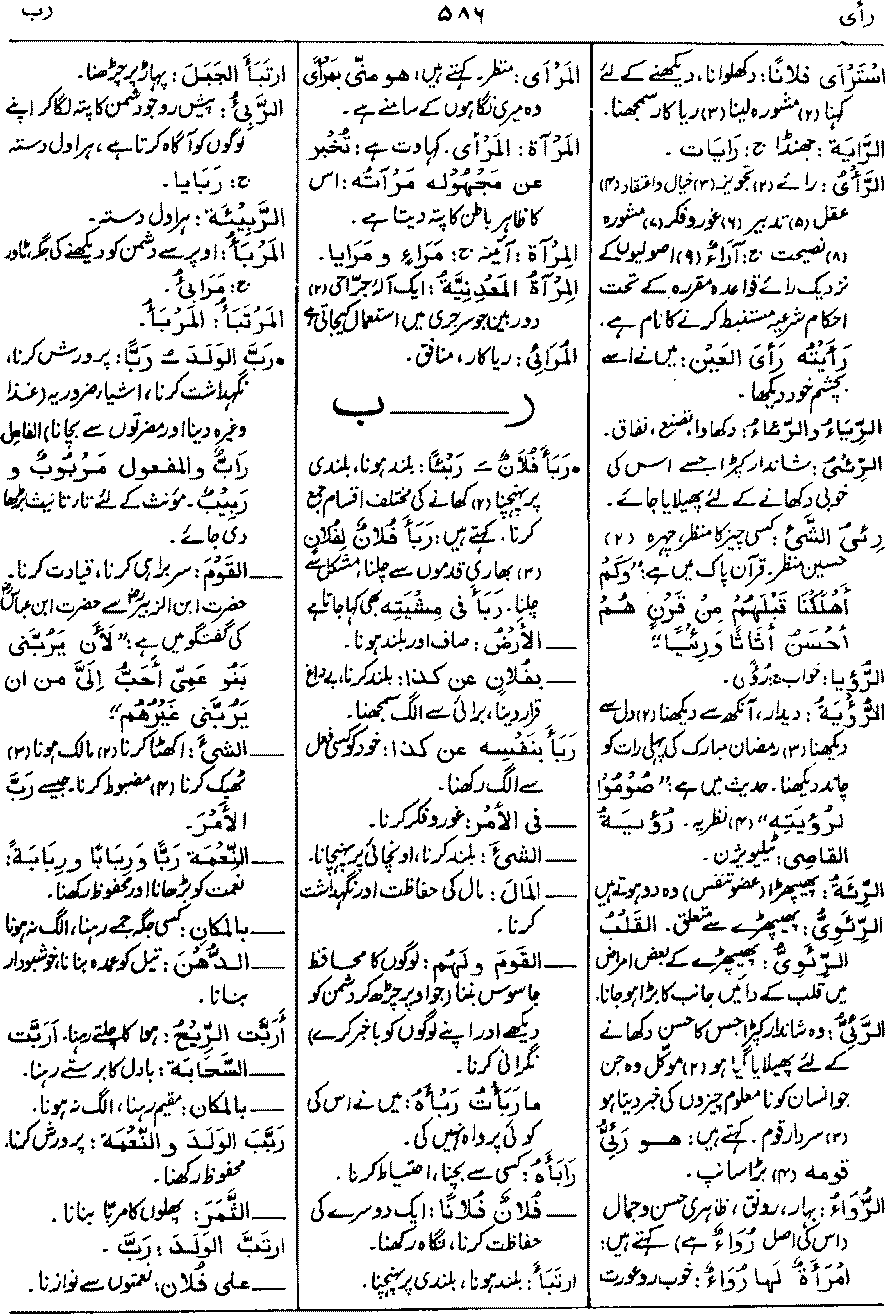 رأی ۵۸۶ رب
اسْتَرْأَى فلانًا: دکھلوانا، دیکھنے کے لئے
کہنا (۲) مشورہ لینا (۳) ریاکار سمجھنا۔
الرَّايَة: جھنڈا ج: رَايَات ۔
الرَّأْيُ: رائے (۲) تجویز (۳) خیال و اعتقاد (۴)
عقل (۵) تدبیر (۶) غور و فکر (۷) مشورہ
(۸) نصیحت ج: آرَاءٌ (۹) اصولیوں کے
نزدیک رائے قواعدِ مقررہ کے تحت
احکام شرعیہ مستنبط کرنے کا نام ہے۔
رَأَيْتُه رَأْىَ العَيْن: میں نے اسے
بچشم خود دیکھا۔
الرِّيَاءُ و الرِّئَاءُ: دکھاوا، تصنع، نفاق۔
الرِّئْىُ: شاندار کپڑا جسے اس کی
خوبی دکھانے کے لئے پھیلایا جائے۔
رِئْىُ الشَّىْءِ: کسی چیز کا منظر، چہرہ (۲)
حسین منظر۔ قرآن پاک میں ہے: "وَكَمْ
أَهْلَكْنَا قَبْلَهُم مِنْ قَرْنٍ هُمْ
أَحْسَنُ أَثَاثًا وَرِئْيًا"
الرُّؤْيا: خواب ج: رُؤًى۔
الرُّؤْيَةُ: دیدار، آنکھ سے دیکھنا (۲) دل سے
دیکھنا (۳) رمضان مبارک کی پہلی رات کو
چاند دیکھنا۔ حدیث میں ہے: "صُوْمُوْا
لرُؤْيَتِه" (۴) نظریہ۔ رُؤْيَةُ
القاصِى: ٹیلیویژن۔
الرِّئَةُ: پھیپھڑا (عضو تنفس) وہ دو ہوتے ہیں
الرِّئَوِىُّ: پھیپھڑے سے متعلق۔ القَلْبُ
الرِّئَوِىُّ: پھیپھڑے کے بعض امراض
میں قلب کے دائیں جانب کا بڑا ہو جانا۔
الرَّئِىُّ: وہ شاندار کپڑا جس کا حسن دکھانے
کے لئے پھیلایا گیا ہو (۲) موکل وہ جن
جو انسان کو نا معلوم چیزوں کی خبر دیتا ہو
(۳) سردار قوم۔ کہتے ہیں: هو رَئِىُّ
قومه (۴) بڑا سانپ۔
الرُّوَاءُ: بہار، رونق، ظاہری حسن و جمال
(اس کی اصل رُؤَاءٌ ہے) کہتے ہیں:
امْرَأَةٌ لَها رُوَاءٌ: خوب رو عورت
المَرْأَى: منظر۔ کہتے ہیں: هو مِنِّى بمَرْأًى
وہ میری نگاہوں کے سامنے ہے۔
المَرْآة: المَرْأَى۔ کہاوت ہے: تُخْبِر
عن مَجْهُولِه مَرْآتُه: اس
کا ظاہر باطن کا پتہ دیتا ہے۔
المِرْآة: آئینہ ج: مَرَاءٍ و مَرَايا۔
المِرْآةُ المَعْدِنِيَّةُ: ایک آلۂ جراحی (۲)
دوربین جو سرجری میں استعمال کیجاتی ہے
المُرَائِى: ریاکار، منافق۔
ر ـــــ ب
• رَبَأَ فُلانٌ ـَـ رَبْئًا: بلند ہونا، بلندی
پر پہنچنا (۲) کھانے کی مختلف اقسام جمع
کرنا۔ کہتے ہیں: رَبَأَ فُلانٌ لِفُلانٍ
(۳) بھاری قدموں سے چلنا، مشکل سے
چلنا۔ رَبَأَ فى مِشْيَتِه بھی کہا جاتا ہے
ـــ الأرضُ: صاف اور بلند ہونا۔
ـــ بِفُلانٍ عن كذا: بلند کرنا، بے داغ
قرار دینا، برائی سے الگ سمجھنا۔
رَبَأَ بنَفْسِه عن كذا: خود کو کسی فعل
سے الگ رکھنا۔
ـــ فى الأمْرِ: غور و فکر کرنا۔
ـــ الشىءَ: بلند کرنا، اونچائی پر پہنچانا۔
ـــ المالَ: مال کی حفاظت اور نگہداشت
کرنا۔
ـــ القَوْمَ و لَهُم: لوگوں کا محافظ
جاسوس بننا (جو اوپر چڑھ کر دشمن کو
دیکھے اور اپنے لوگوں کو باخبر کرے)
نگرانی کرنا۔
ما رَبَأْتُ رَبْأَهُ: میں نے اس کی
کوئی پرواہ نہیں کی۔
رَابَأَهُ: کسی سے بچنا، احتیاط کرنا۔
ـــ فُلانٌ فُلانًا: ایک دوسرے کی
حفاظت کرنا، نگاہ رکھنا۔
ارتبَأَ: بلند ہونا، بلندی پر پہنچنا۔
ارتبَأَ الجَبَلَ: پہاڑ پر چڑھنا۔
الرَّبِئُ: پیش رو جو دشمن کا پتہ لگا کر اپنے
لوگوں کو آگاہ کرتا ہے، ہراول دستہ
ج: رَبَايا۔
الرَّبِيْئَة: ہراول دستہ۔
المَرْبَأُ: اوپر سے دشمن کو دیکھنے کی جگہ، ٹاور
ج: مَرَابِئُ۔
المُرْتَبَأُ: المَرْبَأُ۔
• رَبَّ الوَلَدَ ـُـ رَبًّا: پرورش کرنا،
نگہداشت کرنا، اشیاء ضروریہ (غذا
وغیرہ دینا اور مضرتوں سے بچانا) الفاعل
رَابٌّ والمفعول مَرْبُوبٌ و
رَبِيبٌ۔ مؤنث کے لئے تاء تانیث بڑھا
دی جائے۔
ـــ القَوْمَ: سربراہی کرنا، قیادت کرنا۔
حضرت ابن الزبیرؓ سے حضرت ابن عباسؓ
کی گفتگو میں ہے: "لَأَنْ يَرُبَّنى
بَنُو عَمِّى أَحَبُّ إلىَّ من ان
يَرُبَّنى غَيْرُهُم"
ـــ الشىءَ: اکھٹا کرنا (۲) مالک ہونا (۳)
ٹھیک کرنا (۴) مضبوط کرنا۔ جیسے رَبَّ
الأَمْرَ۔
ـــ النِّعْمَة رَبًّا وَرِبَابًا ورِبَابَةً:
نعمت کو بڑھانا اور محفوظ رکھنا۔
ـــ بالمكانِ: کسی جگہ جمے رہنا، الگ نہ ہونا
ـــ الدُّهْنَ: تیل کو عمدہ بنانا، خوشبودار
بنانا۔
أَرَبَّت الرِّيْحُ: ہوا کا چلتے رہنا۔ أَرَبَّت
السَّحَابَةُ: بادل کا برستے رہنا۔
ـــ بالمكان: مقیم رہنا، الگ نہ ہونا۔
رَبَّبَ الوَلَدَ و النِّعْمَةَ: پرورش کرنا،
محفوظ رکھنا۔
ـــ الثَّمَرَ: پھلوں کا مربا بنانا۔
ارتبَّ الوَلَدَ: رَبَّ۔
ـــ على فُلان: نعمتوں سے نوازنا۔